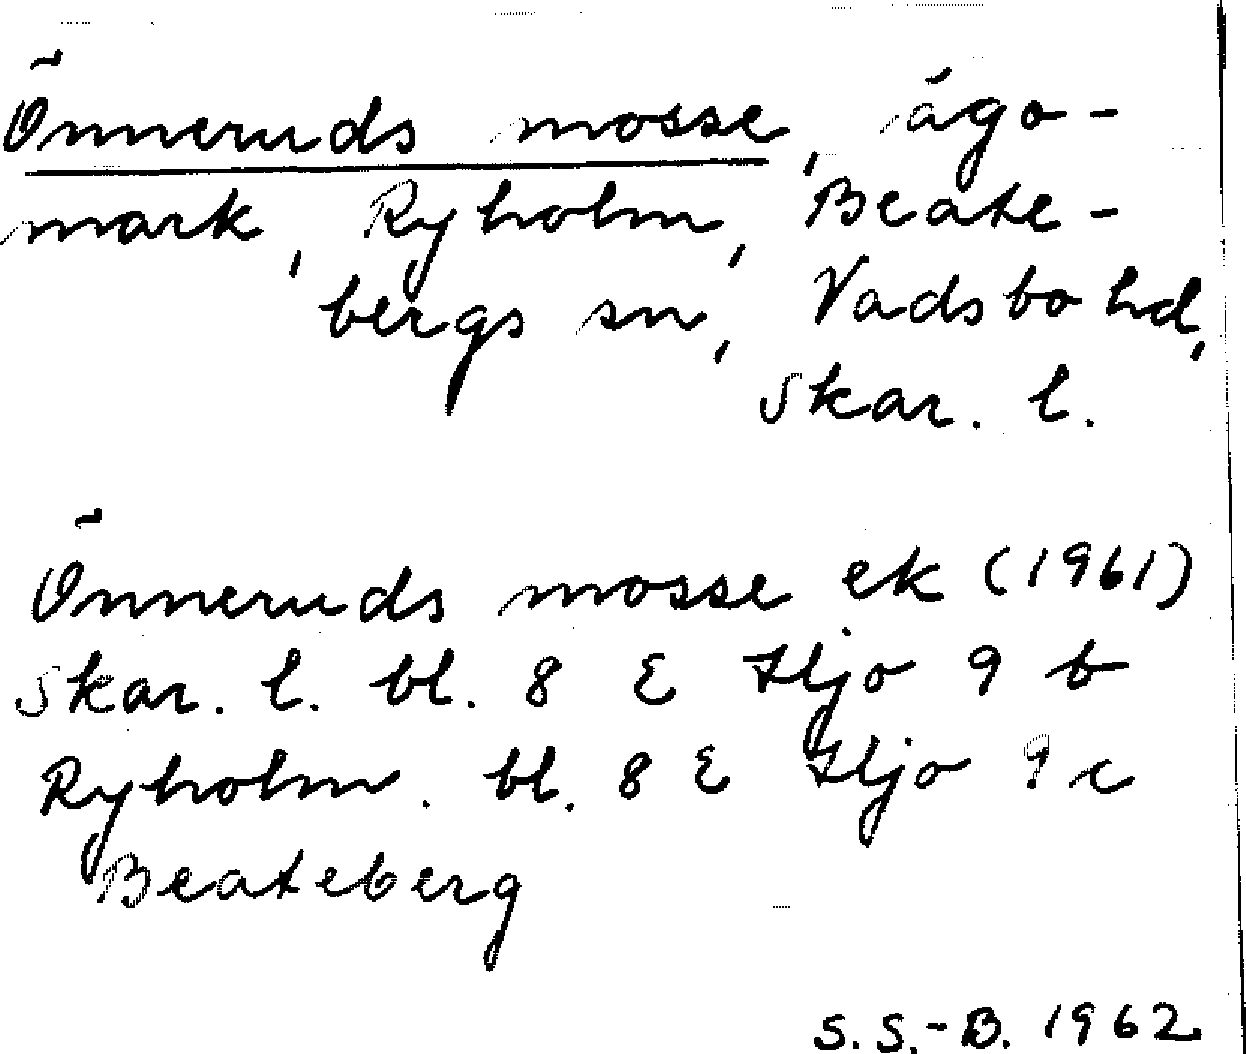 Önneruds mosse, ägo-
mark, Ryholm, Beate-
bergs sn, Vadsbo hd,
Skar. l.
Önneruds mosse ek (1961)
Skar. l. bl. 8 E Hjo 9 b
Ryholm. bl. 8 E Hjo 9 c
Beateberg
S.S.-B. 1962